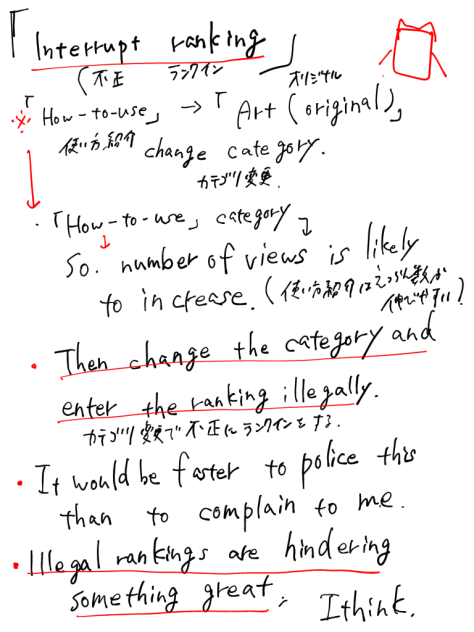 「Interrupt ranking」
(不正 ランクイン
オリジナル
※「How-to-use」 → 「Art (original)」
使い方紹介 change category.
カテゴリ変更
・「How-to-use」 category
So. number of views is likely
to increase. (使い方紹介はえつらん数が
伸びやすい)
・Then change the category and
enter the ranking illegally.
カテゴリ変更で不正にランクインをする.
・It would be faster to police this
than to complain to me.
・Illegal rankings are hindering
something great; I think.